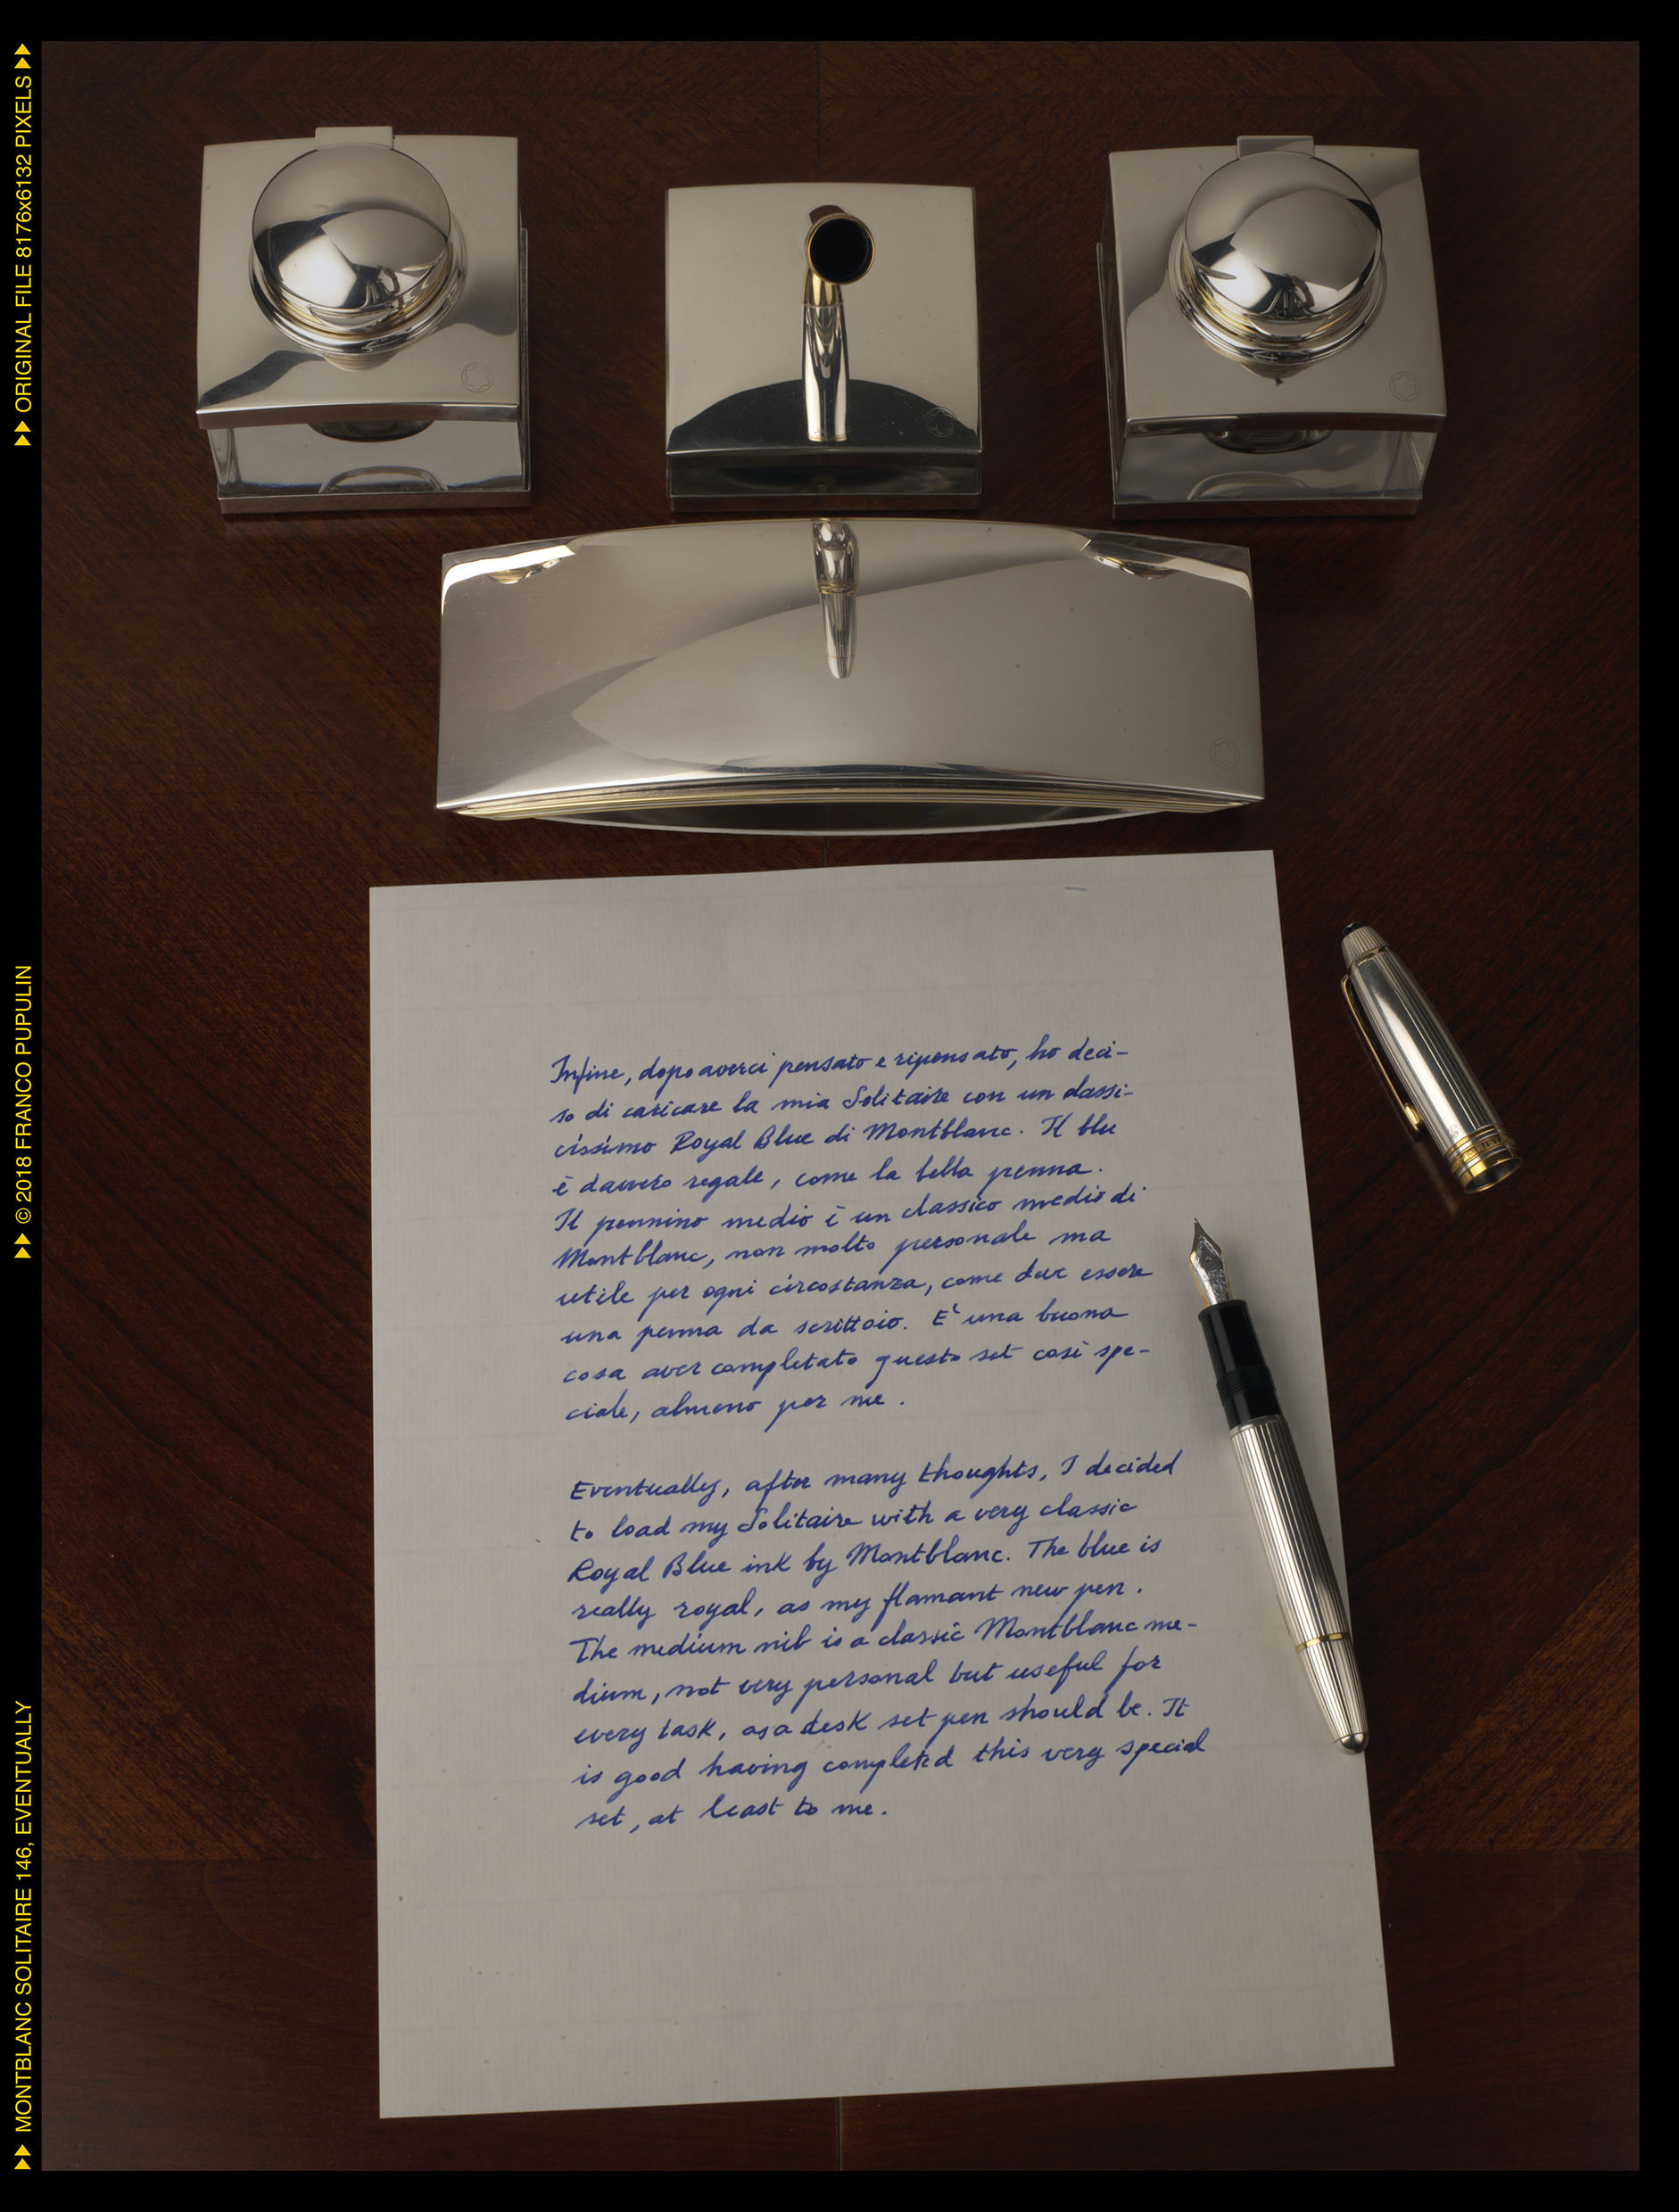 Infine, dopo averci pensato e ripensato, ho deci-
so di caricare la mia Solitaire con un classi-
cissimo Royal Blue di Montblanc. Il blu
è davvero regale, come la bella penna.
Il pennino medio è un classico medio di
Montblanc, non molto personale ma
utile per ogni circostanza, come deve essere
una penna da scrittoio. E' una buona
cosa aver completato questo set così spe-
ciale, almeno per me.
Eventually, after many thoughts, I decided
to load my Solitaire with a very classic
Royal Blue ink by Montblanc. The blue is
really royal, as my flamant new pen.
The medium nib is a classic Montblanc me-
dium, not very personal but useful for
every task, as a desk set pen should be. It
is good having completed this very special
set, at least to me.
MONTBLANC SOLITAIRE 146, EVENTUALLY
© 2018 FRANCO PUPULIN
ORIGINAL FILE 8176x6132 PIXELS